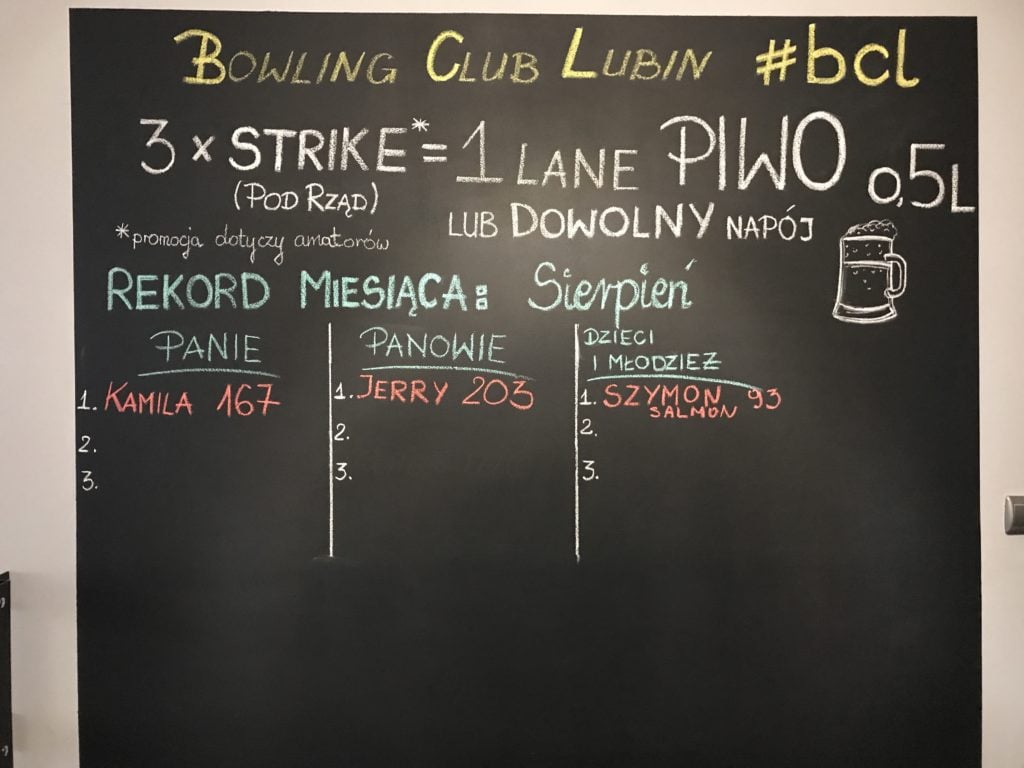 BOWLING CLUB LUBIN #bcl
3 x STRIKE* = 1 LANE PIWO 0,5L
(POD RZĄD)
LUB DOWOLNY NAPÓJ
*promocja dotyczy amatorów
REKORD MIESIĄCA: Sierpień
PANIE
1. KAMILA 167
2.
3.
PANOWIE
1. JERRY 203
2.
3.
DZIECI
I MŁODZIEŻ
1. SZYMON 93
SALMON
2.
3.